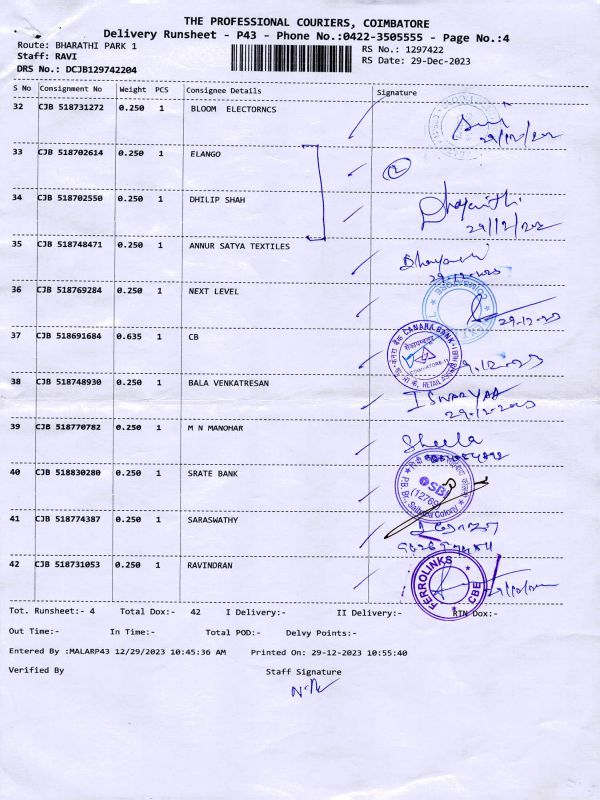 THE PROFESSIONAL COURIERS, COIMBATORE
Delivery Runsheet - P43 - Phone No.:0422-3505555 - Page No.:4
Route: BHARATHI PARK 1
RS No.: 1297422
Staff: RAVI
RS Date: 29-Dec-2023
DRS No.: DCJB129742204
S No Consignment No Weight PCS Consignee Details Signature
32 CJB 518731272 0.250 1 BLOOM ELECTORNCS
33 CJB 518702614 0.250 1 ELANGO 2
34 CJB 518702550 0.250 1 DHILIP SHAH
35 CJB 518748471 0.250 1 ANNUR SATYA TEXTILES
29-12-2023
36 CJB 518769284 0.250 1 NEXT LEVEL
29-12-23
37 CJB 518691684 0.635 1 CB CANARA BANK
38 CJB 518748930 0.250 1 BALA VENKATRESAN ISWARYAA
29-12-2023
39 CJB 518770782 0.250 1 M N MANOHAR Sheela
40 CJB 518830280 0.250 1 SRATE BANK SBI
41 CJB 518774387 0.250 1 SARASWATHY
42 CJB 518731053 0.250 1 RAVINDRAN FERROLINKS CBE
Tot. Runsheet:- 4 Total Dox:- 42 I Delivery:- II Delivery:- RTN Dox:-
Out Time:- In Time:- Total POD:- Delvy Points:-
Entered By :MALARP43 12/29/2023 10:45:36 AM Printed On: 29-12-2023 10:55:40
Verified By Staff Signature